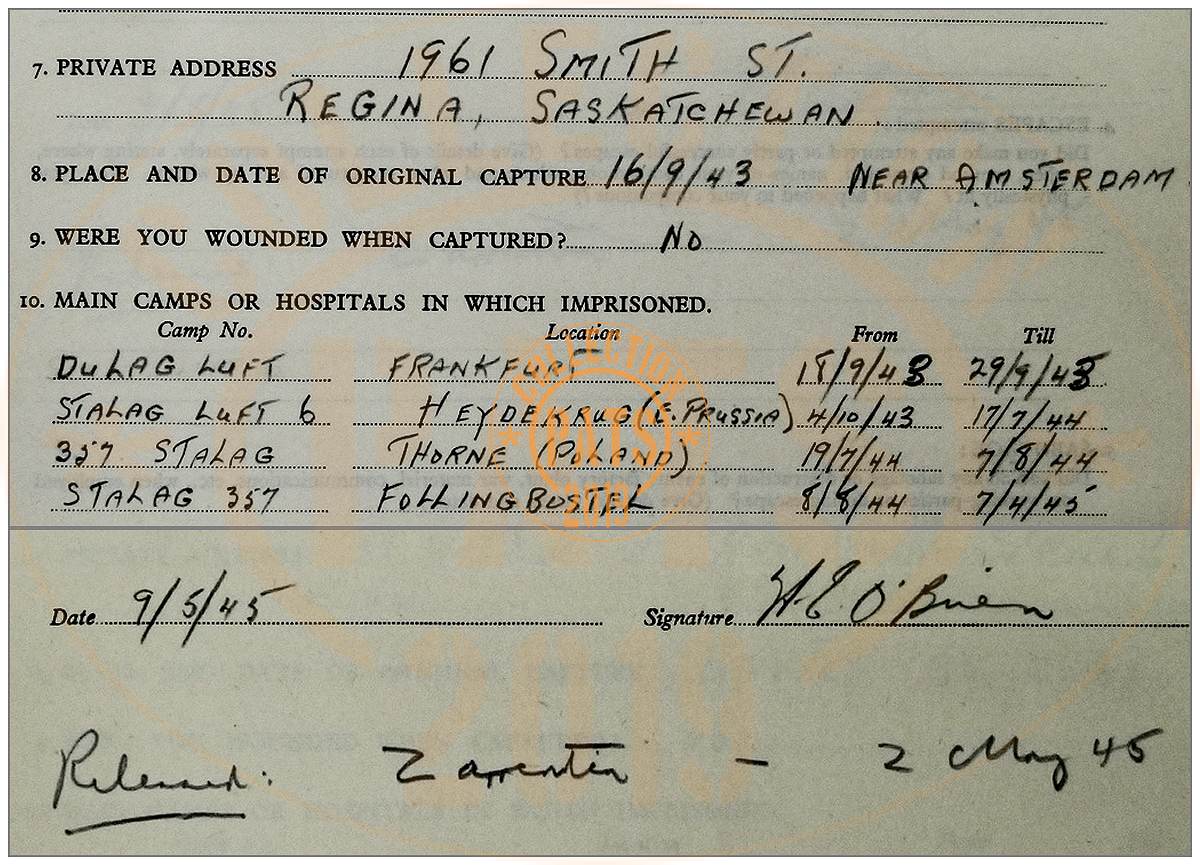 7. PRIVATE ADDRESS 1961 SMITH ST.
REGINA, SASKATCHEWAN.
8. PLACE AND DATE OF ORIGINAL CAPTURE 16/9/43 NEAR AMSTERDAM
9. WERE YOU WOUNDED WHEN CAPTURED? NO
10. MAIN CAMPS OR HOSPITALS IN WHICH IMPRISONED.
Camp No. Location From Till
DULAG LUFT FRANKFURT 18/9/43 29/9/43
STALAG LUFT 6 HEYDEKRUG (E. PRUSSIA) 4/10/43 17/7/44
357 STALAG THORNE (POLAND) 19/7/44 7/8/44
STALAG 357 FOLLINGBOSTEL 8/8/44 7/4/45
COLLECTION
BATS
2019
Date 9/5/45 Signature W.E. O'Brien
Released: Zarrentin - 2 May 45